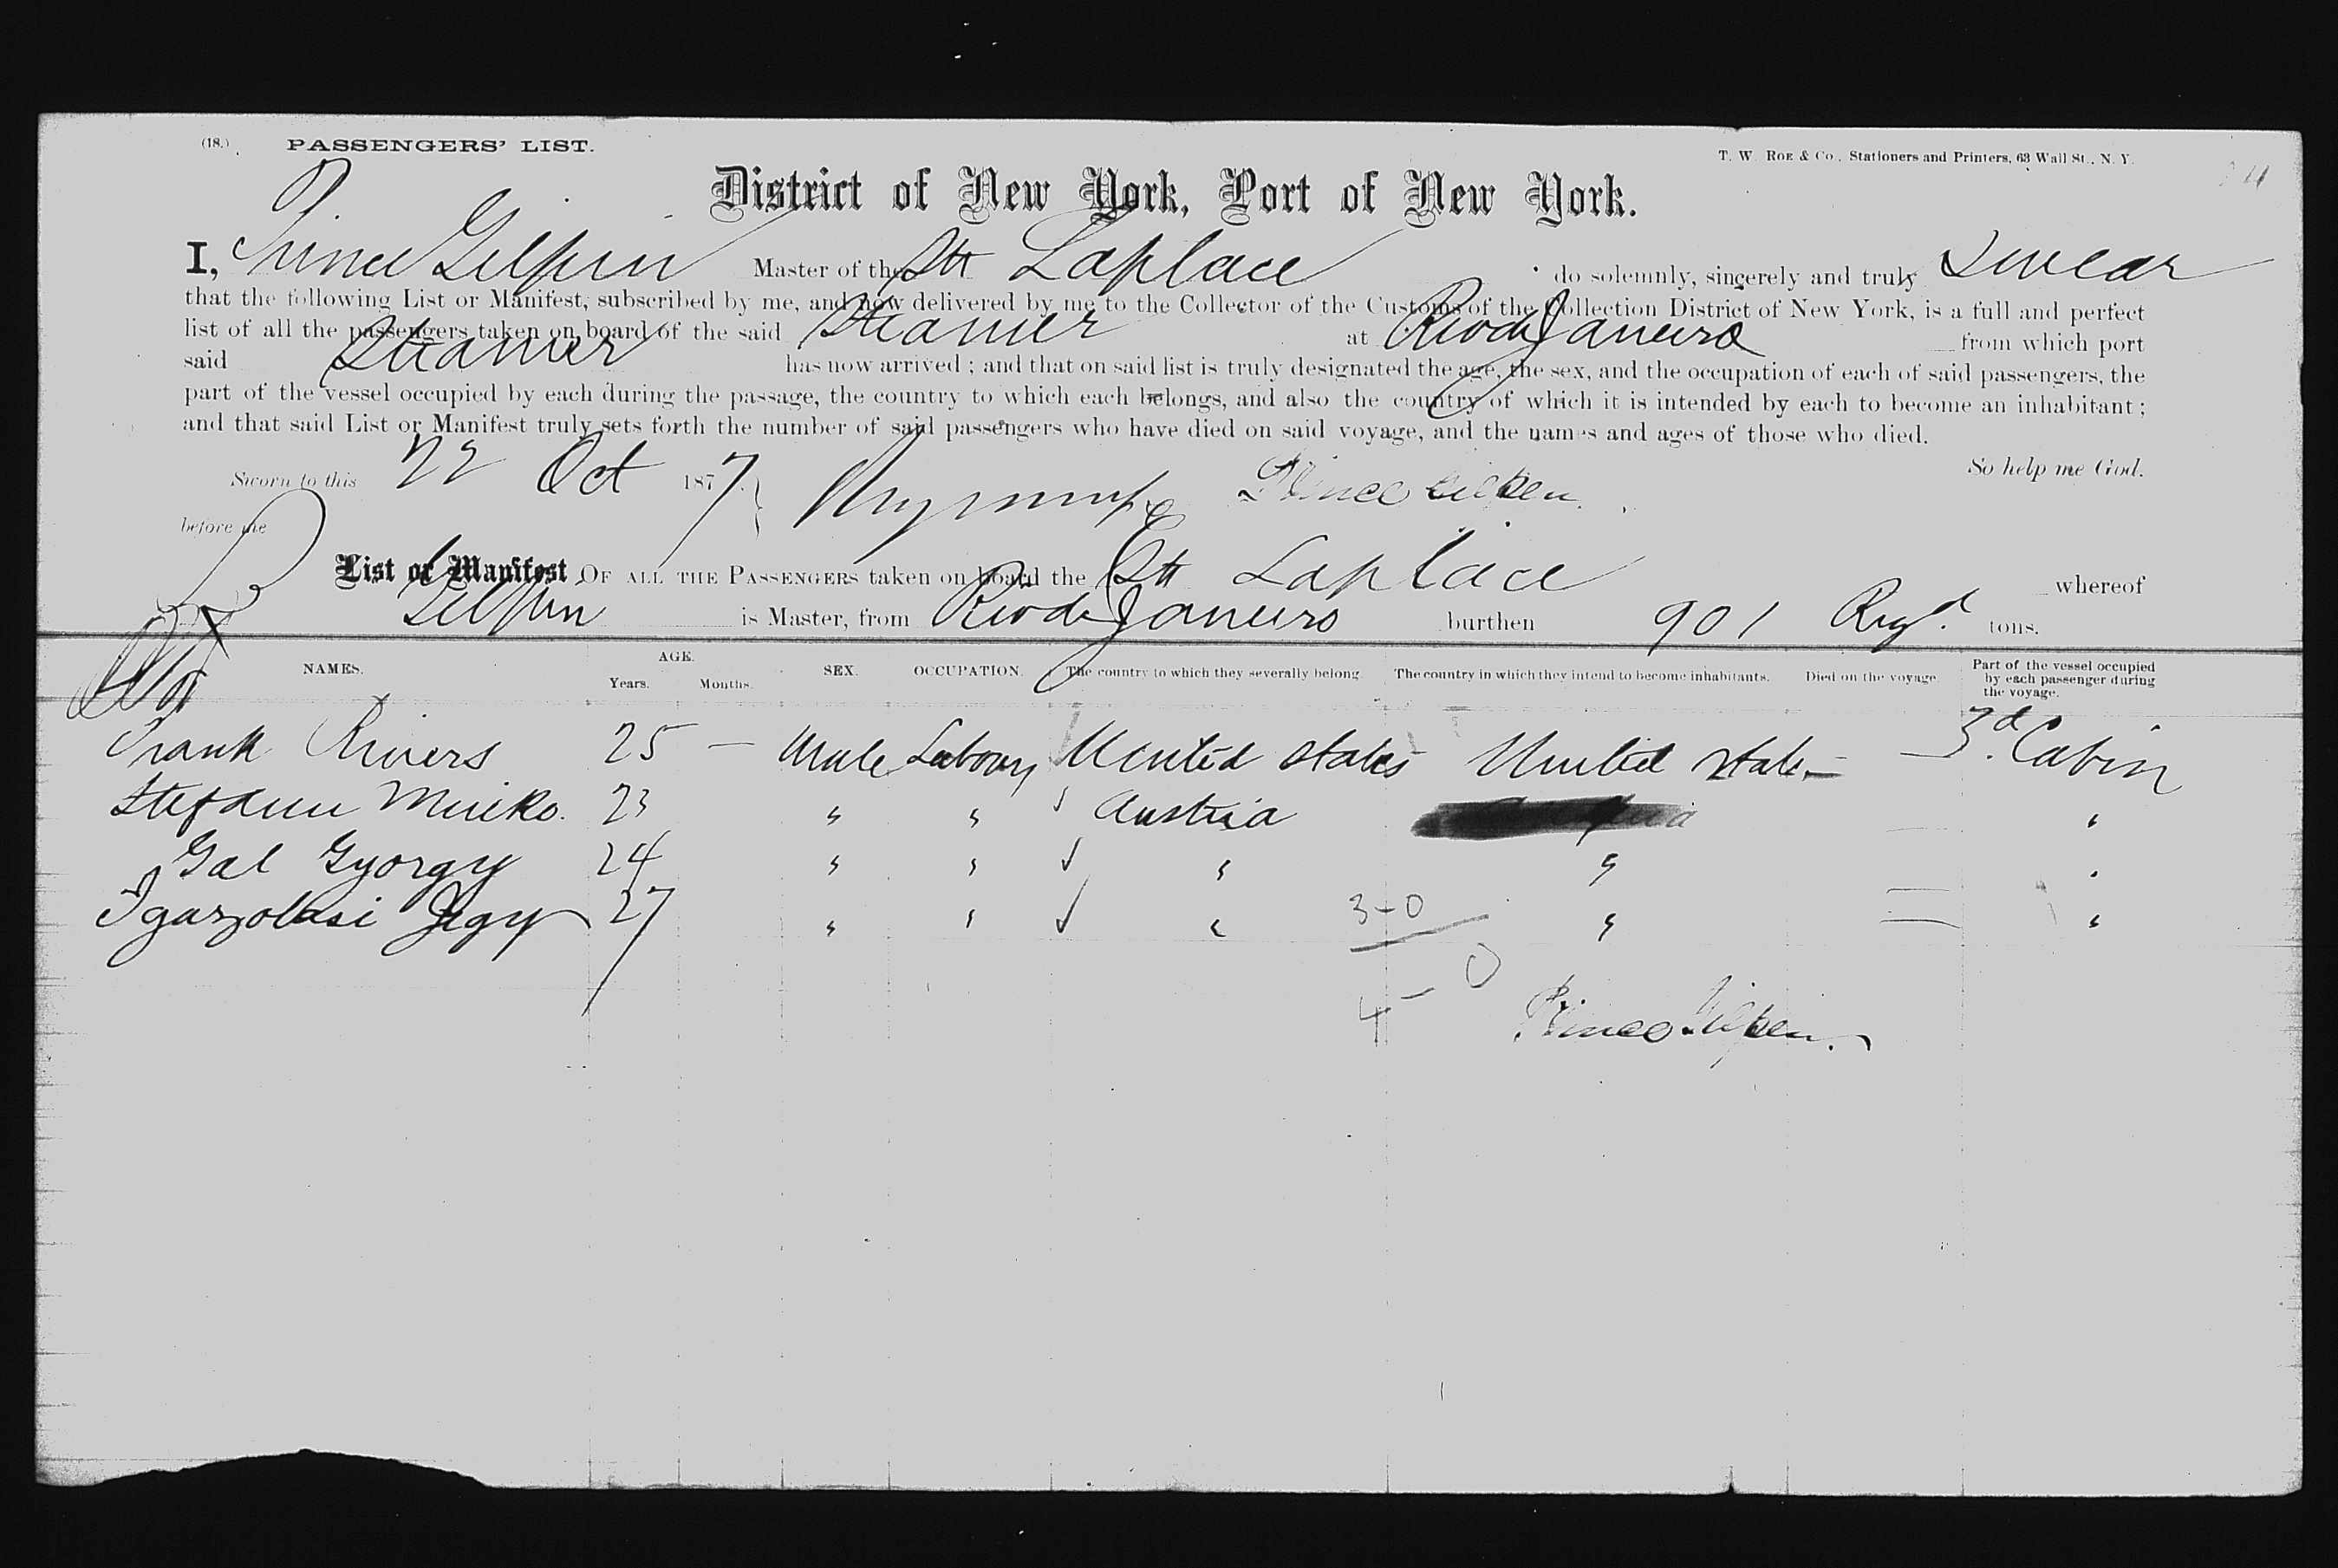 (18.) PASSENGERS' LIST.
T. W. ROE & CO., Stationers and Printers, 63 Wall St., N. Y.
District of New York, Port of New York.
I, Prince Gilpin Master of the Str Laplace do solemnly, sincerely and truly Swear
that the following List or Manifest, subscribed by me, and now delivered by me to the Collector of the Customs of the Collection District of New York, is a full and perfect
list of all the passengers taken on board of the said Steamer at Rio de Janeiro from which port
said Steamer has now arrived ; and that on said list is truly designated the age, the sex, and the occupation of each of said passengers, the
part of the vessel occupied by each during the passage, the country to which each belongs, and also the country of which it is intended by each to become an inhabitant ;
and that said List or Manifest truly sets forth the number of said passengers who have died on said voyage, and the names and ages of those who died.
So help me God.
Sworn to this 22 Oct 1877 Prince Gilpin.
before me
List or Manifest OF ALL THE PASSENGERS taken on board the Str Laplace whereof
Gilpin is Master, from Rio de Janeiro burthen 901 Regd. tons.
NAMES. AGE. Years. Months. SEX. OCCUPATION. The country to which they severally belong. The country in which they intend to become inhabitants. Died on the voyage. Part of the vessel occupied by each passenger during the voyage.
Frank Rivers 25 — Male United States United States 3d. Cabin
23 " " Austria "
Gal Gyorgy 24 " " " " "
27 " " " " "
3-0
4 - 0
Prince Gilpin.